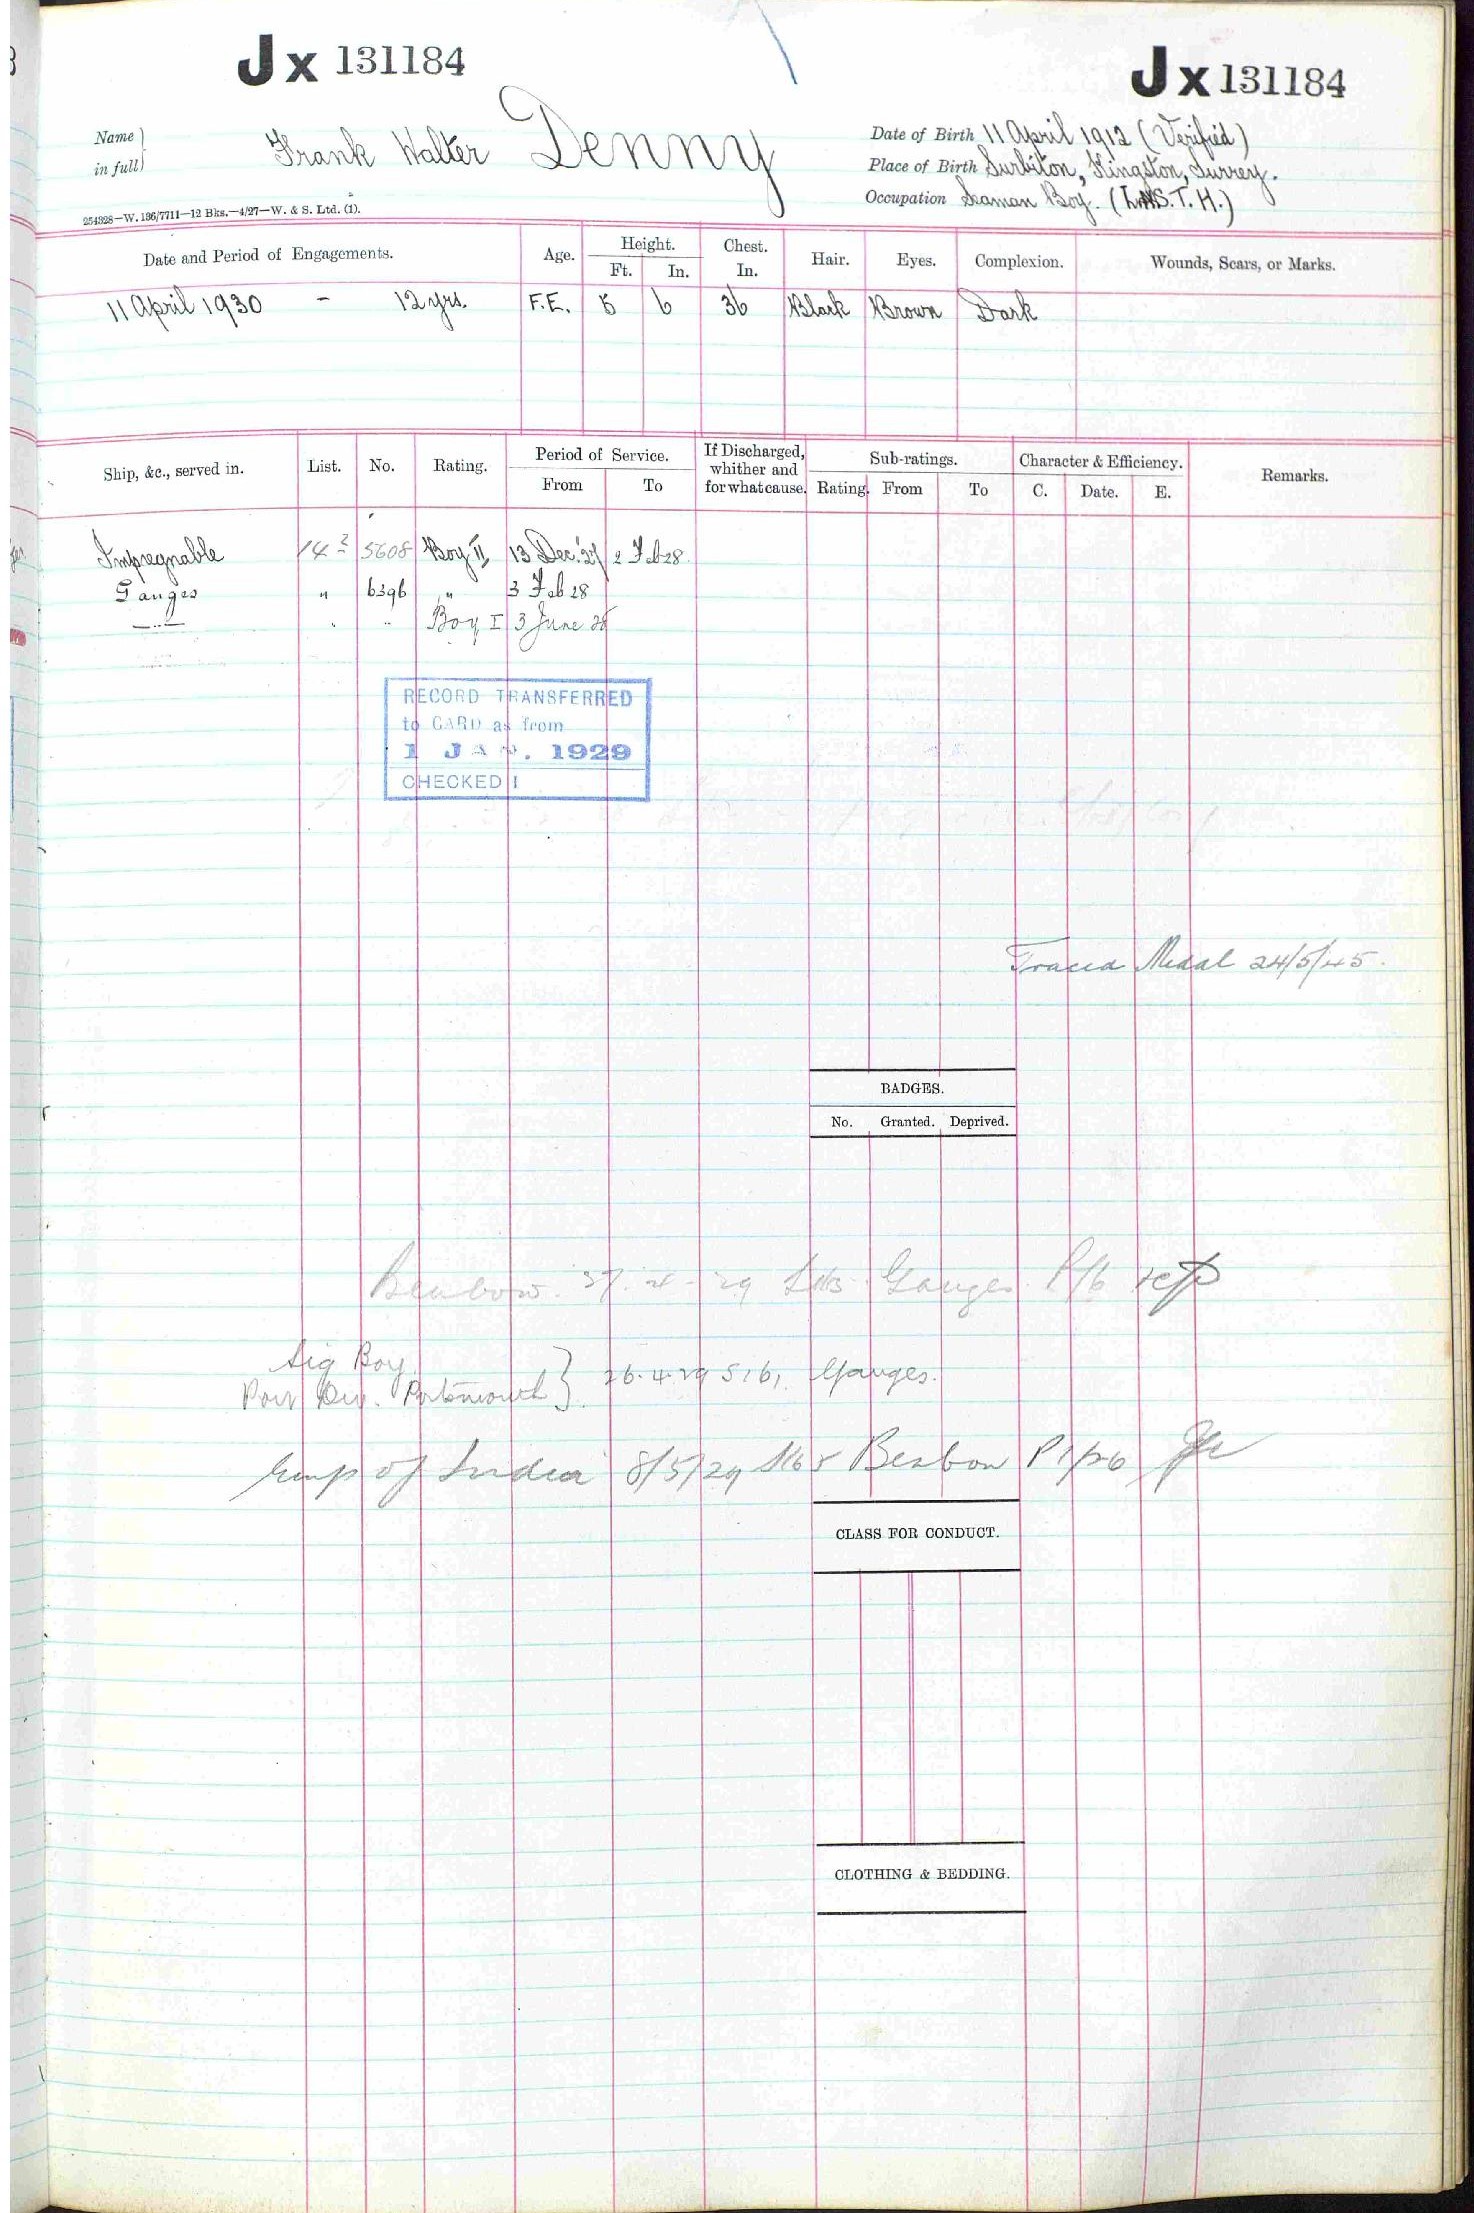 Jx 131184
Jx 131184
Name in full } Frank Walter Denny
Date of Birth 11 April 1912 (Verified)
Place of Birth Surbiton, Kingston, Surrey.
Occupation Seaman Boy. (S.T.H.)
254328—W. 136/7711—12 Bks.—4/27—W. & S. Ltd. (1).
Date and Period of Engagements. Age. Height. Ft. In. Chest. In. Hair. Eyes. Complexion. Wounds, Scars, or Marks.
11 April 1930 - 12 yrs. F.E. 5 6 36 Black Brown Dark
Ship, &c., served in. List. No. Rating. Period of Service. From To If Discharged, whither and for what cause. Sub-ratings. Rating. From To Character & Efficiency. C. Date. E. Remarks.
Impregnable 14² 5608 Boy II 13 Dec. '27 2 Feb 28
Ganges " 6396 " 3 Feb 28
Boy I 3 June 28
RECORD TRANSFERRED
to CARD as from
1 JAN. 1929
CHECKED
Traced Medal 24/5/45.
BADGES.
No. Granted. Deprived.
Benbow 29 Ganges
Sig Boy
Port Div. Portsmouth } 26.4.29 5161 Ganges.
Emp of India 8/5/29 Benbow
CLASS FOR CONDUCT.
CLOTHING & BEDDING.